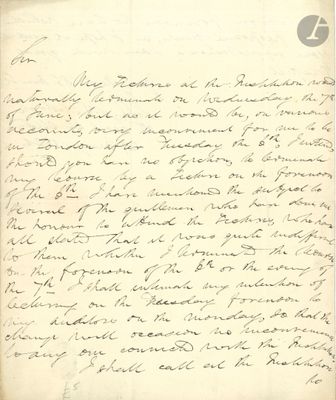 Sir
My Lectures at the Institution would
naturally terminate on Wednesday, the 7th
of June; but as it would be, on various
accounts, very inconvenient for me to be
in London after Tuesday the 6th, I intend
should you have no objection, to terminate
my course by a Lecture on the forenoon
of the 6th. I have mentioned the subject to
several of the gentlemen who have done me
the honour to attend the Lectures, who have
all stated that it was quite indifferent
to them whether I terminated the course
on the forenoon of the 6th or the evening of
the 7th. I shall intimate my intention of
lecturing on the Tuesday forenoon to
my auditors on the monday, so that the
change will occasion no inconvenience
to any one connected with the Institution
I shall call at the Institution
to